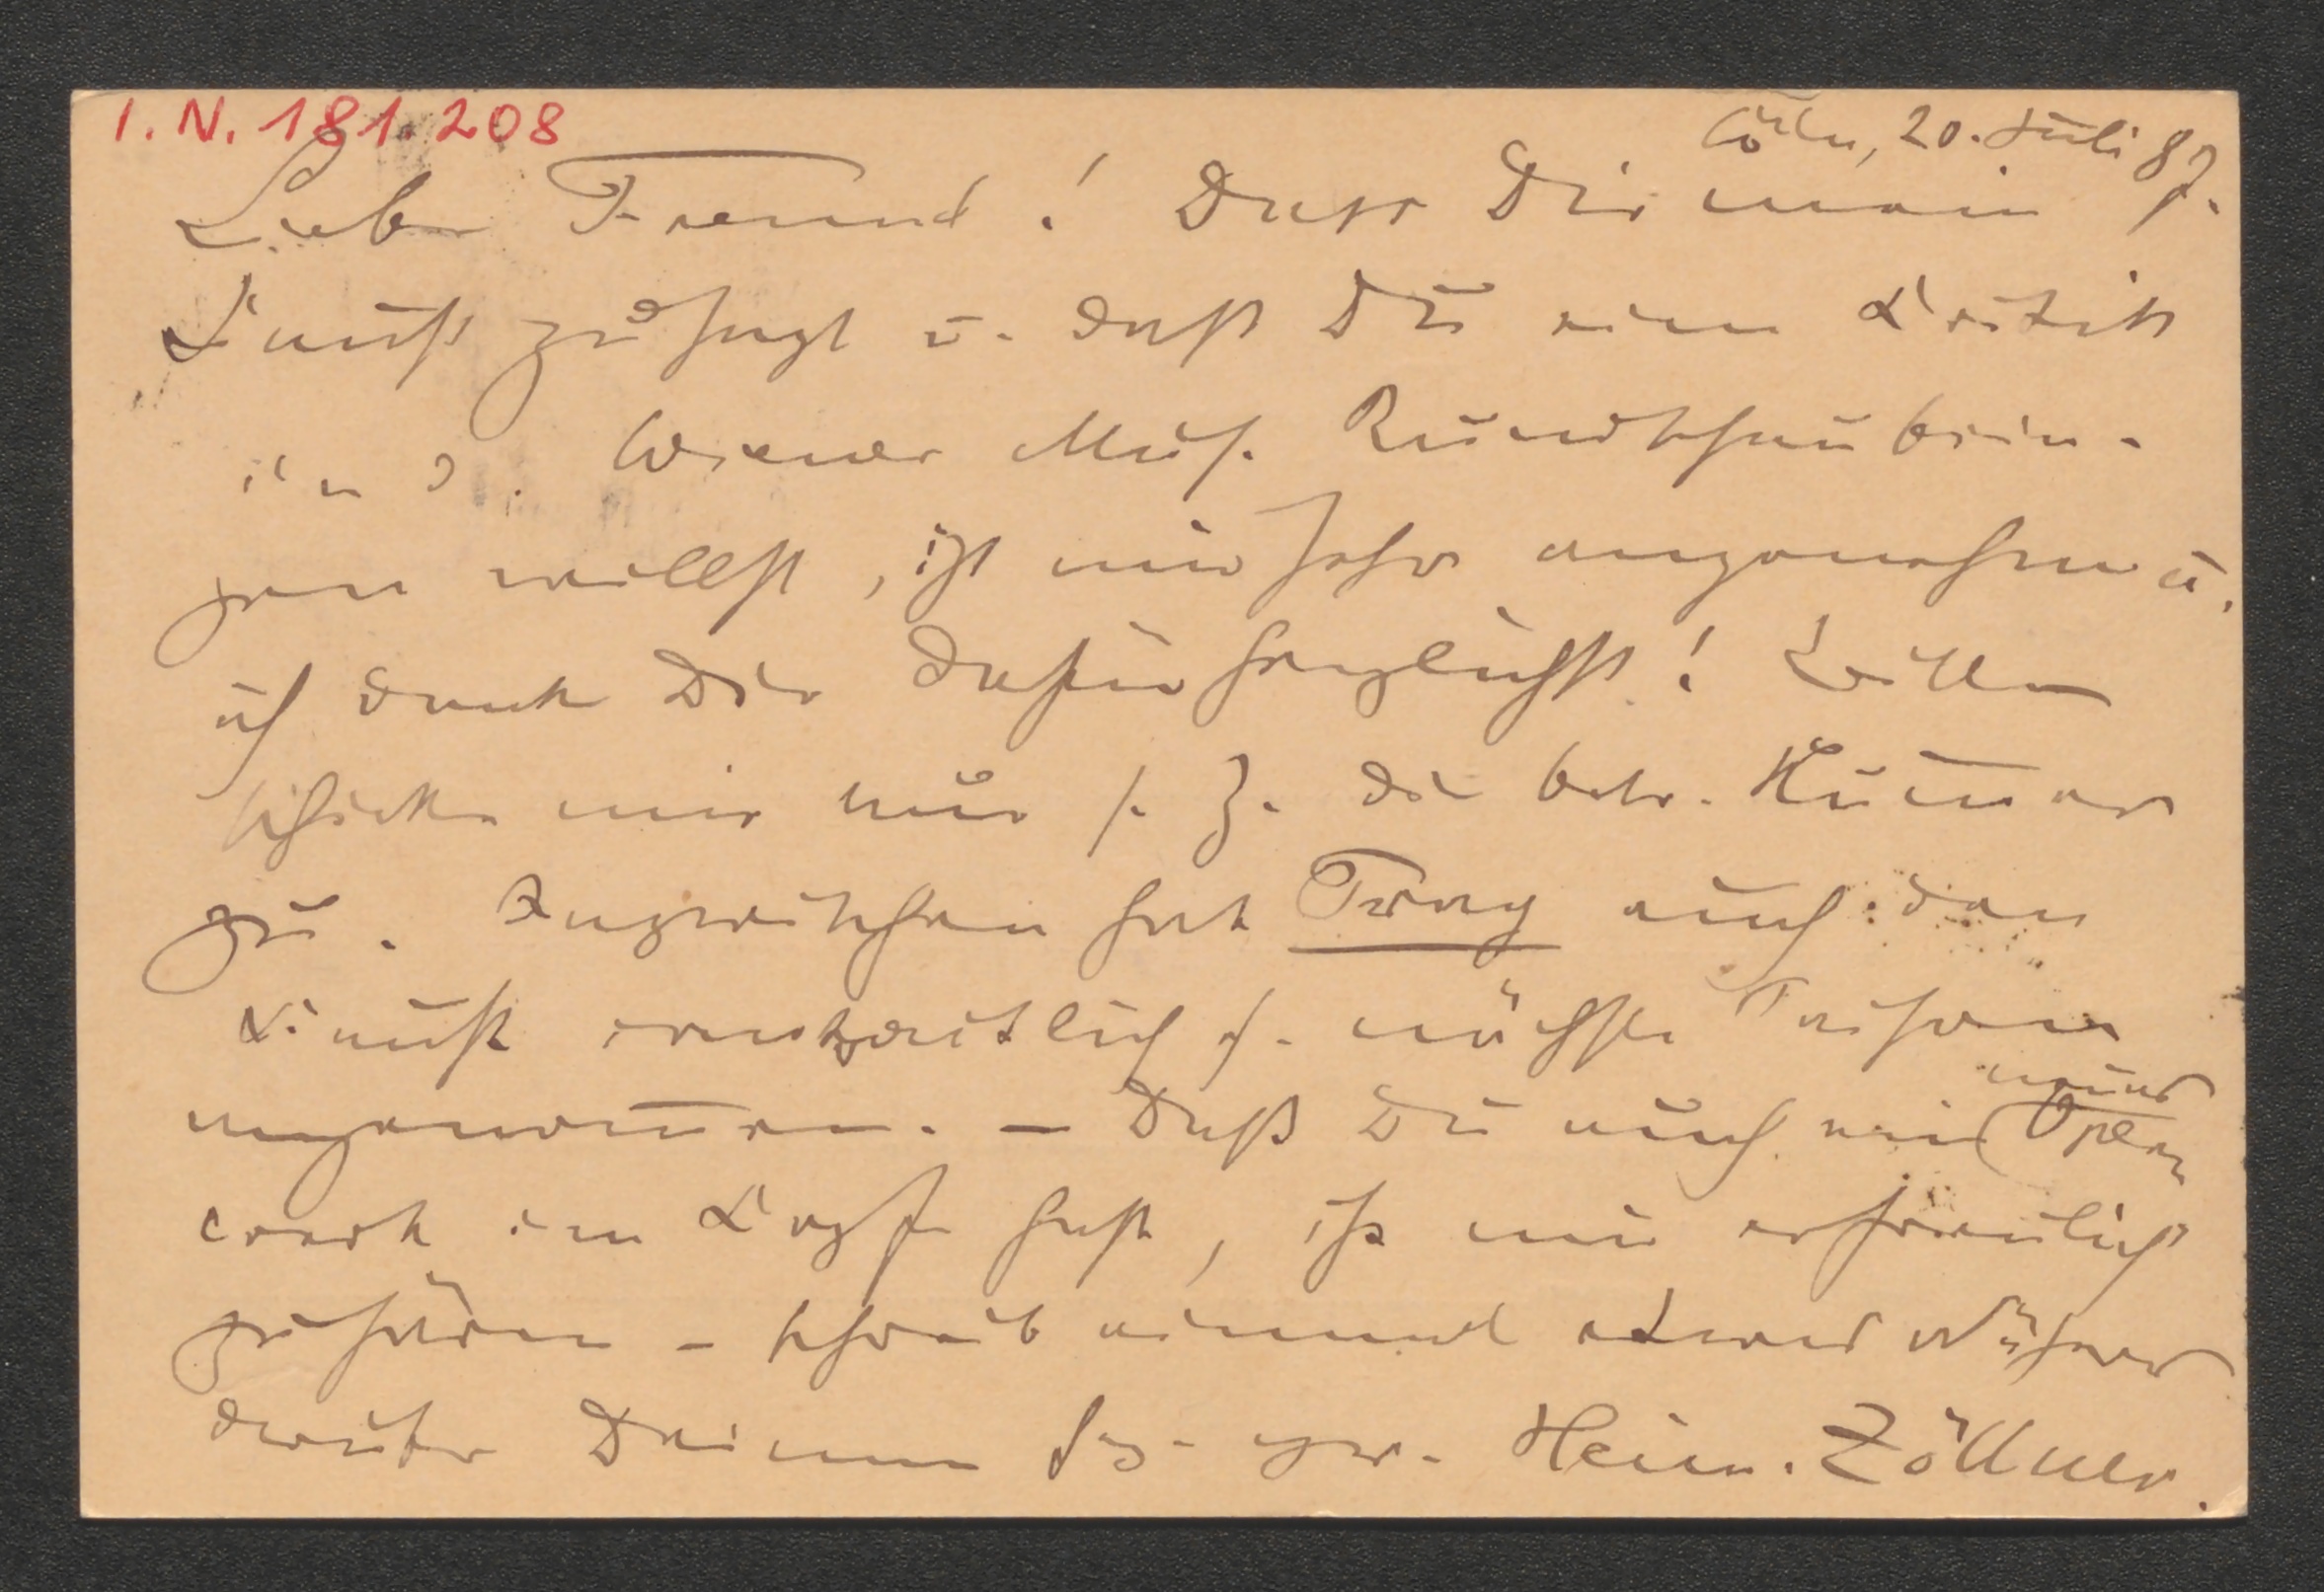 I. N. 181.208
Cöln, 20. Juli 87.
Lieber Freund! Dass Dir mein
Faust zusagt u. daß Du eine Kritik
in d. Wiener Mus. Rundschau brin-
gen willst, ist mir sehr angenehm u.
ich danke Dir dafür herzlichst! Bitte
schicke mir nur s. Z. die betr. Num̅er
zu. Inzwischen hat Prag auch den
Faust contractlich f. nächste Saison
angenom̅en. – Daß Du auch ein neues Opern
werk im Kopfe hast, ist mir erfreulich
zu hören – schreib einmal etwas Näheres
darüber Deinem Hein. Zöllner.